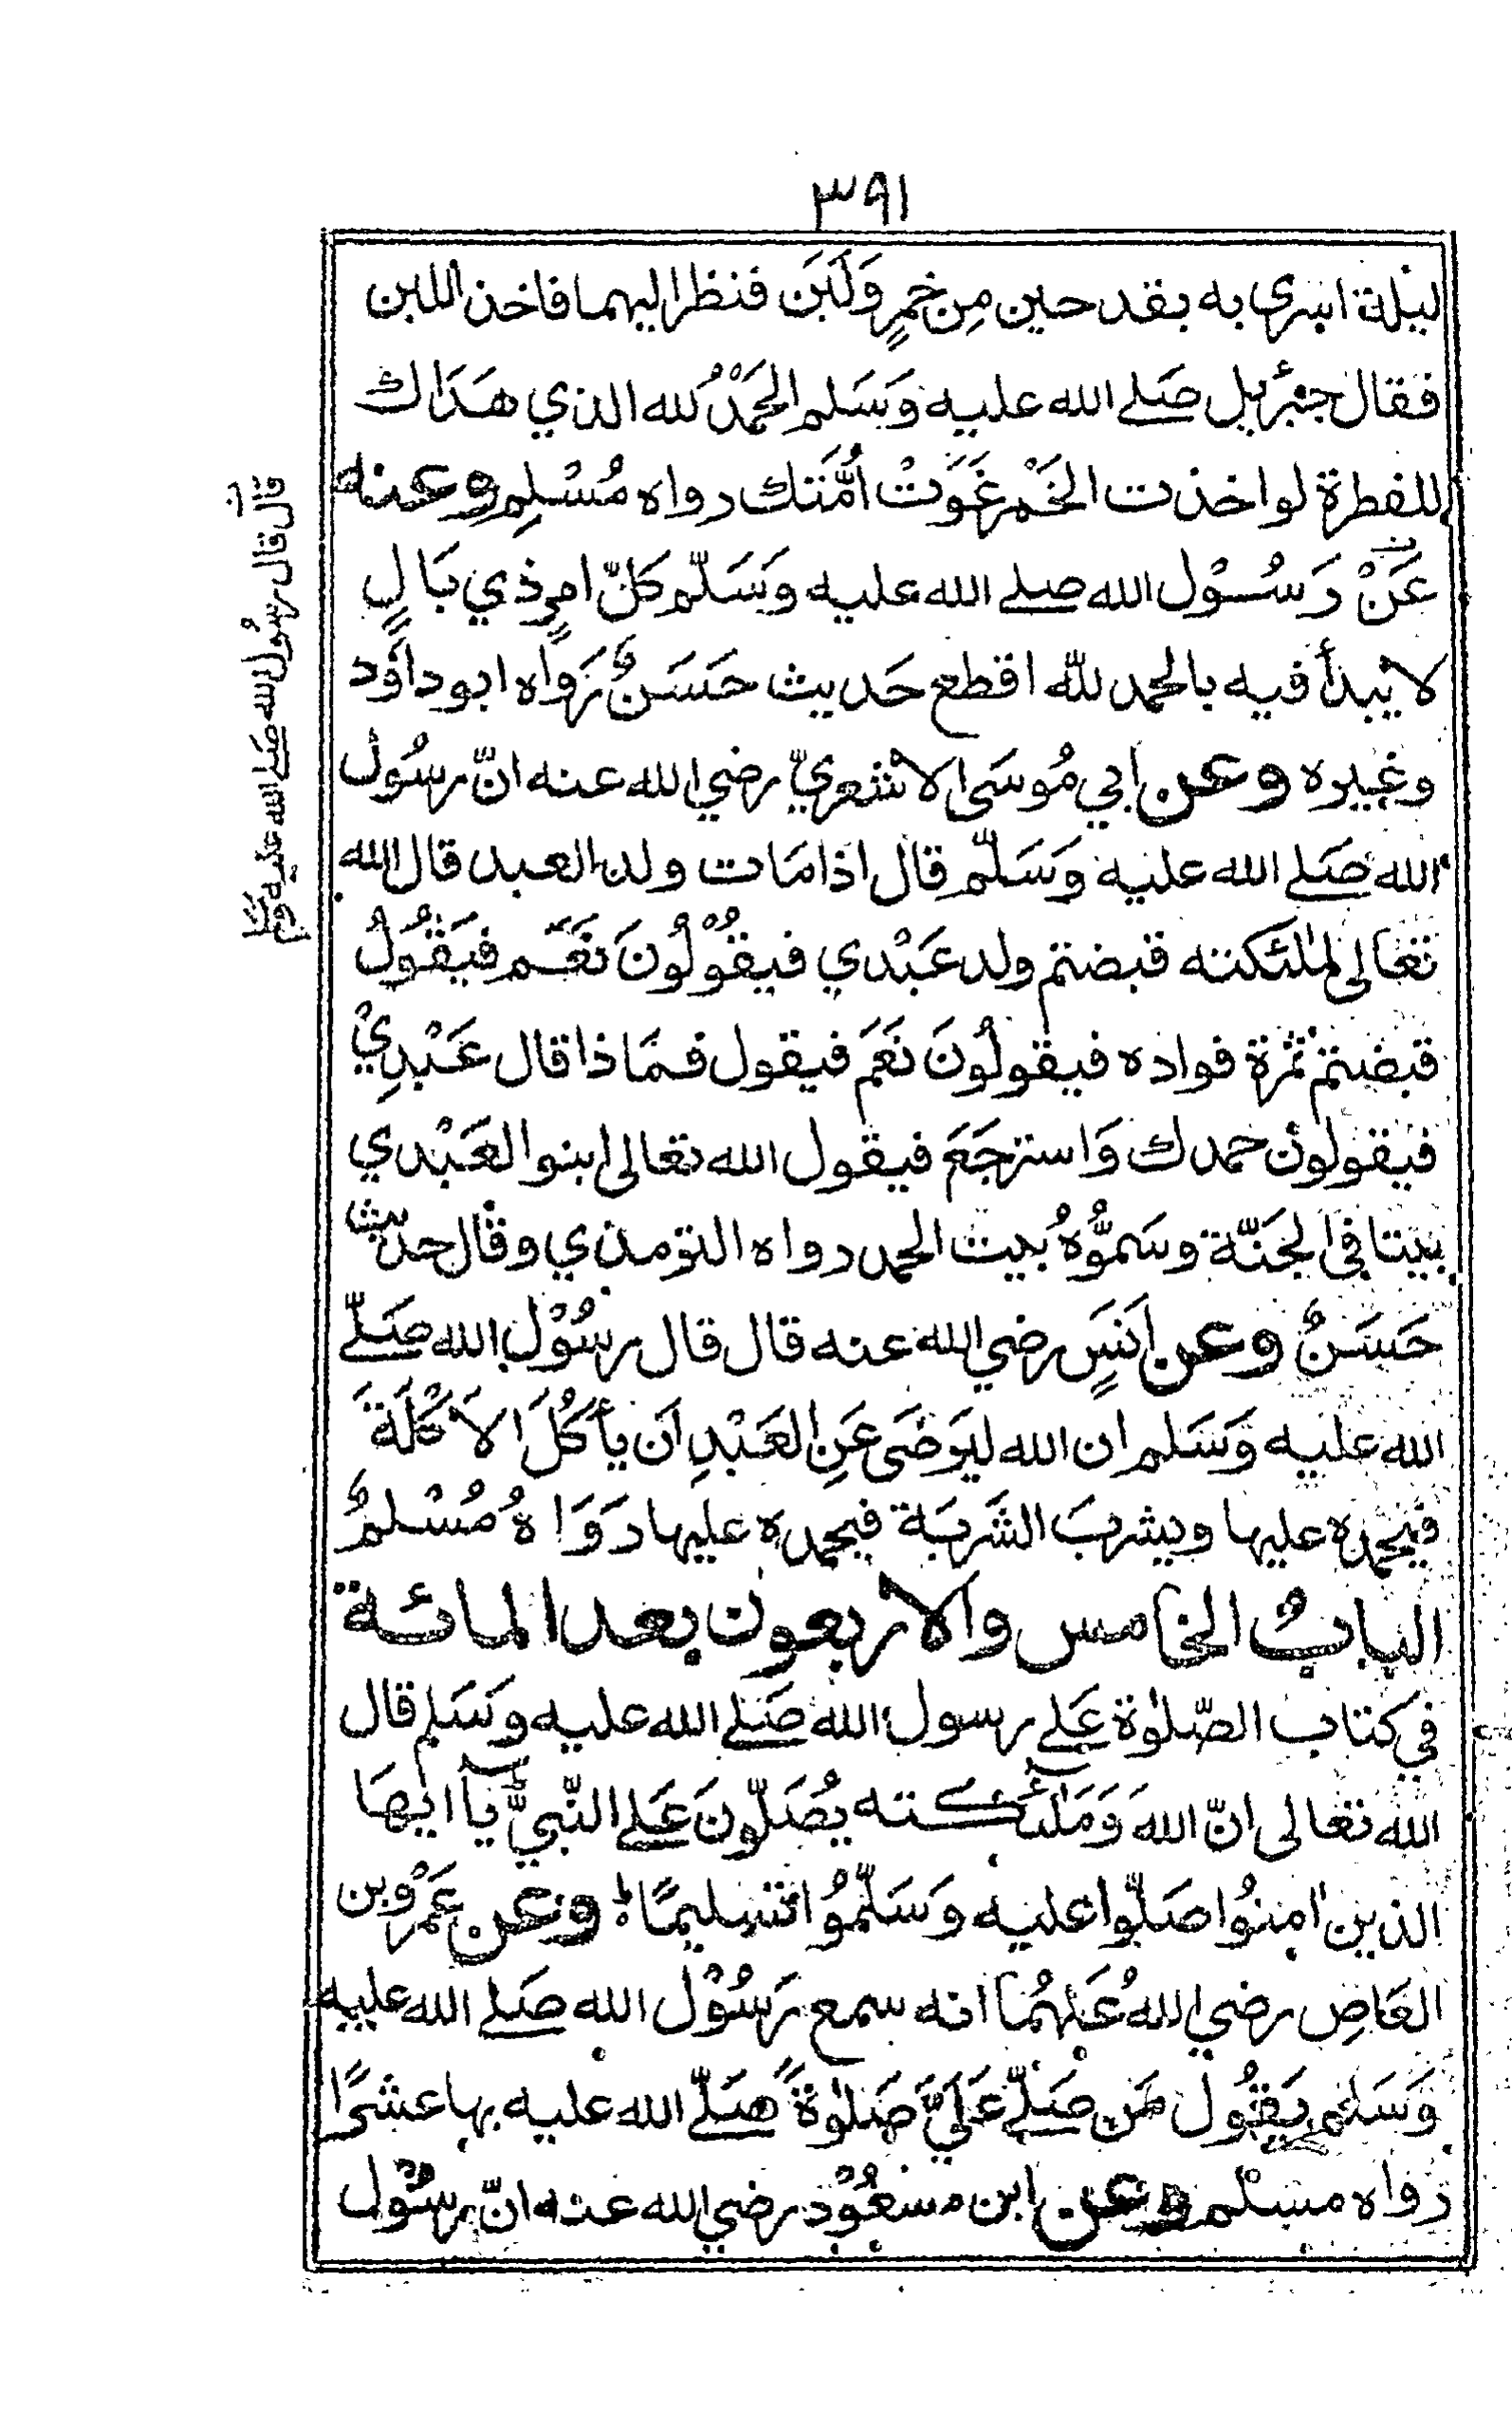 ٣٩١
ليلة اسري به بقدحين مِن خمرٍ وَلَبَن فنظر اليهما فاخذ اللبن
فقال جبْرئيل صَلے الله عليه وَسَلم الحَمْدُ لله الذي هَدَاك
للفطرة لو اخذت الخَمْر غَوَتْ اُمَّتك رواه مُسْلِم وعنه
عَنْ رَسُوْل الله صلے الله عليه وَسَلّم كلّ امرٍ ذي بَالٍ
لا يبدأ فيه بالحمد للّٰه اقطع حَديث حَسَنٌ رَواه ابو داؤد
وغيره وعن ابي مُوسَى الاشعريّ رضي الله عنه انّ رسُول
الله صَلے الله عليه وَسَلّم قال اذا مَات ولد العبد قال الله
تعَالى لملٰئكته قبضتم ولد عَبْدي فيقُوْلُونَ نَعَم فيَقُولُ
قبضتم ثمرة فواده فيقولُونَ نَعَم فيقول فمَاذا قال عَبْدِيْ
فيقولون حمدك وَاسترجَعَ فيقول الله تعَالى ابنوا لعَبْدي
بيتا فى الجَنّة وسَمُّوْهُ بيت الحمد رواه الترمذي وقال حديث
حَسَنٌ وعن اَنَسٍ رضي الله عنه قال قال رسُوْل الله صَلّے
الله عليه وَسَلم ان الله ليَرضَى عَنِ العَبْدِ اَن يأكُلَ الاَكْلَةَ
فيحمده عليها ويشربَ الشَربَة فيحمده عليها رَوَاهُ مُسْلمٌ
البابُ الخامس والاربعون بعد المائة
في كتاب الصّلوٰة عَلے رسول الله صَلے الله عليه وسَلم قال
الله تعَالى انّ الله وَمَلٰئكته يُصَلّونَ عَلے النّبيّ يَآ ايهَا
الذين اٰمنُوا صَلّوا عليه وَسَلّمُوا تسْليمًا؛ وعن عَمْرو بن
العَاصِ رضي اللهُ عَنْهُمَا انه سمع رَسُوْل الله صَلے الله عليه
وَسَلم يَقُول مَن صَلّے عَلَيَّ صَلوٰةً صَلّے الله عليه بها عشرًا
رَواه مسْلم وعن ابن مسعُوْد رضي الله عنه انّ رسُوْل
قال قال رسُول الله صَلے الله عليه وسلم